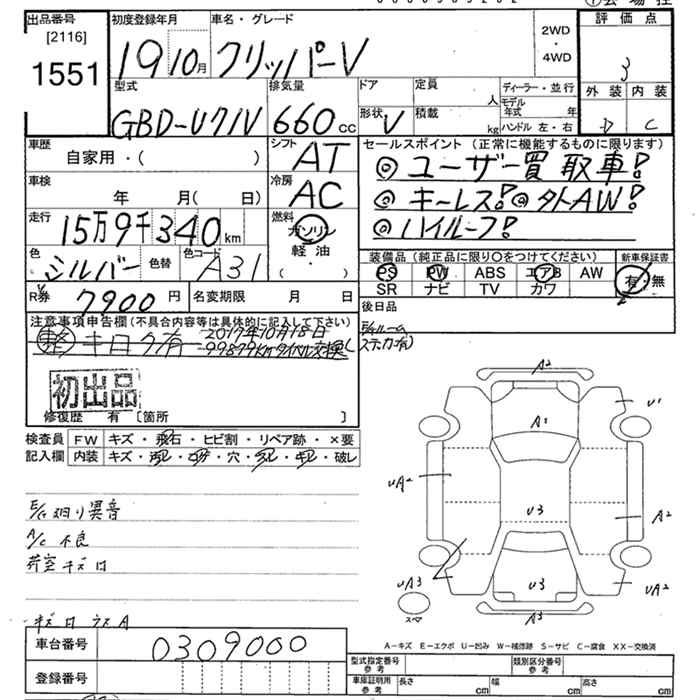 出品番号
[2116]
1551
初度登録年月
19 10月
車名・グレード
クリッパーV
2WD
・
4WD
評価点
3
外装 内装
D C
型式
GBD-U71V
排気量
660 cc
ドア
形状 V
定員
人
積載
kg
ディーラー・並行
モデル
年式 年
ハンドル 左・右
車歴
自家用・( )
シフト
AT
セールスポイント(正常に機能するものに限ります)
◎ユーザー買取車!
◎キーレス!◎外AW!
◎ハイルーフ!
車検
年 月( 日)
冷房
AC
走行
15万9千340 km
燃料
ガソリン
軽油
・
( )
色
シルバー
色替
色コード
A31
装備品(純品に限り○をつけてください)
PS PW ABS エアB AW
SR ナビ TV カワ
新車保証書
有・無
R券 7900 円
名変期限 月 日
後日品
注意事項申告欄(不具合内容等は具体的に記入して下さい)
キロク有
2017年10月18日
99879km タイベル交換
ステッカー有)
初出品
修復歴 有 [箇所 ]
検査員
記入欄
FW キズ・飛石・ヒビ割・リペア跡・×要
内装 キズ・汚レ・コゲ・穴・スレ・キレ・破レ
E/G廻り異音
A/C不良
荷室キズ凹
キズ凹 ウスA
A2
U1
A1
UA2
U3
A2
UA3
U3
UA2
A3
スペア
A-キズ E-エクボ U-凹み W-補修跡 S-サビ C-腐食 XX-交換済
車台番号 0309000
登録番号
型式指定番号
参考
類別区分番号
参考
車庫証明用
参考
長さ cm 幅 cm 高さ cm